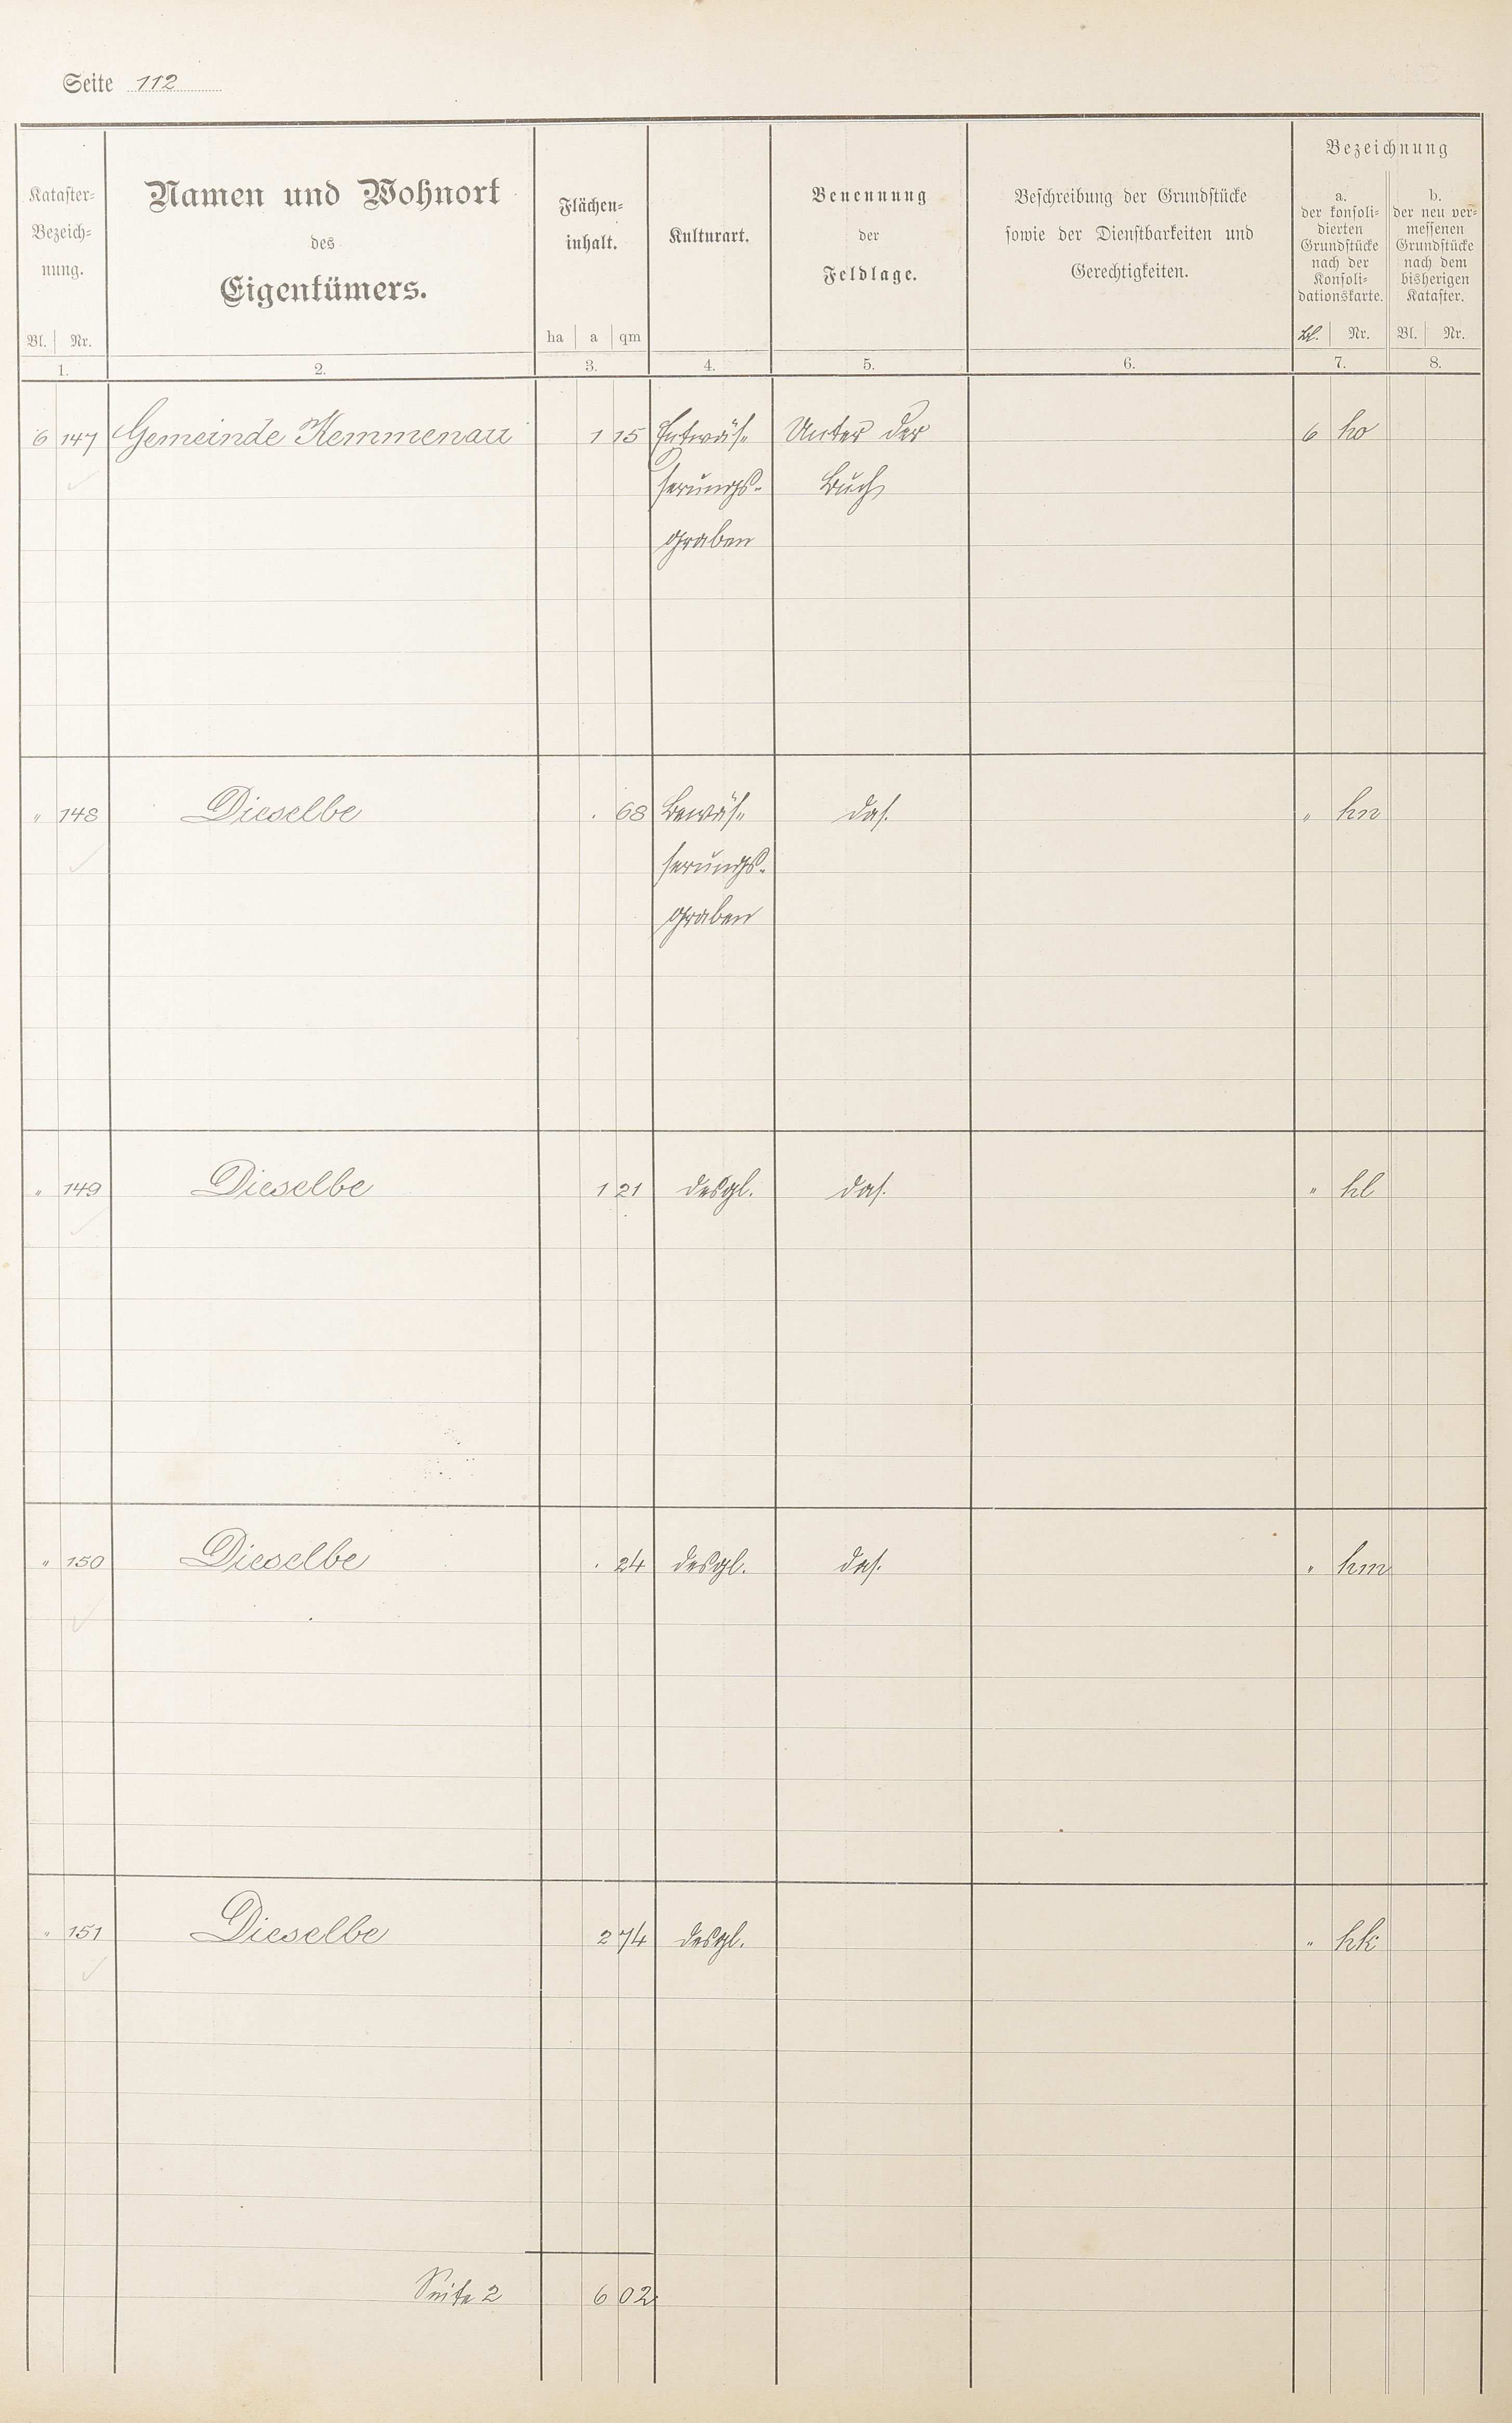 Seite 112
Kataster-
Bezeich-
nung.
Bl. Nr.
1.
Namen und Wohnort
des
Eigentümers.
2.
Flächen-
inhalt.
ha a qm
3.
Kulturart.
4.
Benennung
der
Feldlage.
5.
Beschreibung der Grundstücke
sowie der Dienstbarkeiten und
Gerechtigkeiten.
6.
Bezeichnung
a.
der konsoli-
dierten
Grundstücke
nach der
Konsoli-
dationskarte.
Bl. Nr.
7.
b.
der neu ver-
messenen
Grundstücke
nach dem
bisherigen
Kataster.
Bl. Nr.
8.
6 147 Gemeinde Kemmenau 1 15 Entwäs- Unter der 6 ho
serungs- Buch
graben
" 148 Dieselbe . 68 Bewäs- das. " hn
serungs-
graben
" 149 Dieselbe 1 21 desgl. das. " hl
" 150 Dieselbe . 24 desgl. das. " hm
" 151 Dieselbe 2 74 desgl. " hk
Seite 2 6 02